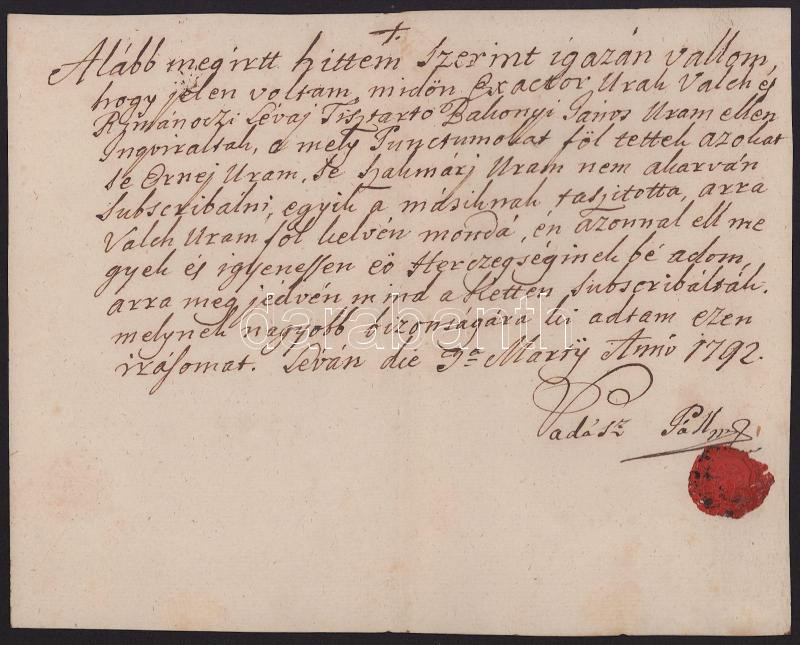 Alább megirtt hittem szerint igazán vallom,
hogy jelen voltam, midőn Exactor Urak Valch és
Rumánoczi Lévaj Tisztartó Bakonyi János Uram ellen
Inquiraltak, a mely Punctumokat föl tettek azokat
se Ernej Uram, se Uram nem akarván
subscribálni, egyik a másiknak taszitotta, arra
Valch Uram föl kelvén mondá, én azonnal ell me
gyek és igyenessen eő Herczegséginek bé adom,
arra meg jedvén mind a Ketten subscribálták.
melynek nagyobb bizonságára ki adtam ezen
irásomat. Leván die 9a Martij Anno 1792.
Vadász Páll mp
darabanth